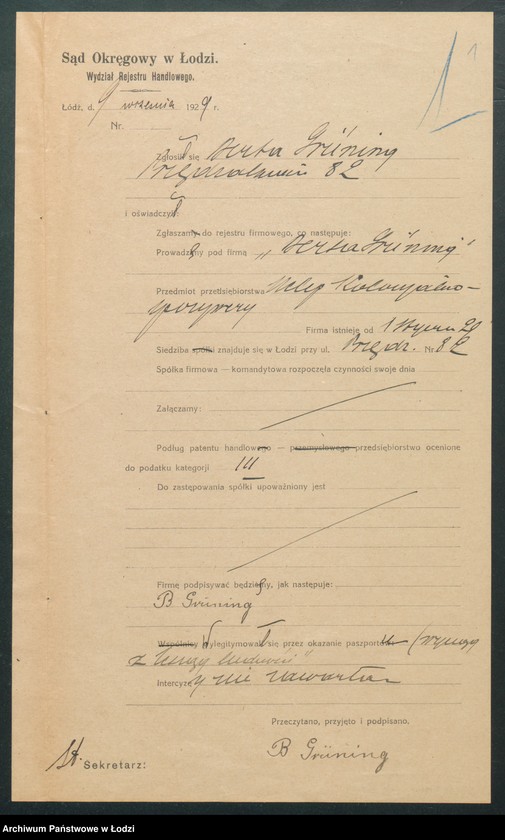 1
Sąd Okręgowy w Łodzi.
Wydział Rejestru Handlowego.
Łódź, d. 9 września 1929 r.
Nr.
Zgłosił się Berta Grüning
82
i oświadczył
Zgłaszamy do rejestru firmowego, co następuje:
Prowadzę pod firmą „Berta Grüning"
Przedmiot przetisębiorstwa Sklep Kolonjalno-
spożywczy
Firma istnieje od 1 stycznia 29
Siedziba spółki znajduje się w Łodzi przy ul. Nr. 82
Spółka firmowa — komandytowa rozpoczęła czynności swoje dnia
Załączamy:
Podług patentu handlowego — przemysłowego przedsiębiorstwo ocenione
do podatku kategorji III
Do zastępowania spółki upoważniony jest
Firmę podpisywać będzie, jak następuje:
B Grüning
Wspólnicy wylegitymowali się przez okazanie paszportu (wyciąg
z księgi ludności)
Intercyzy nie zawarła
Przeczytano, przyjęto i podpisano.
B Grüning
St. Sekretarz:
Archiwum Państwowe w Łodzi